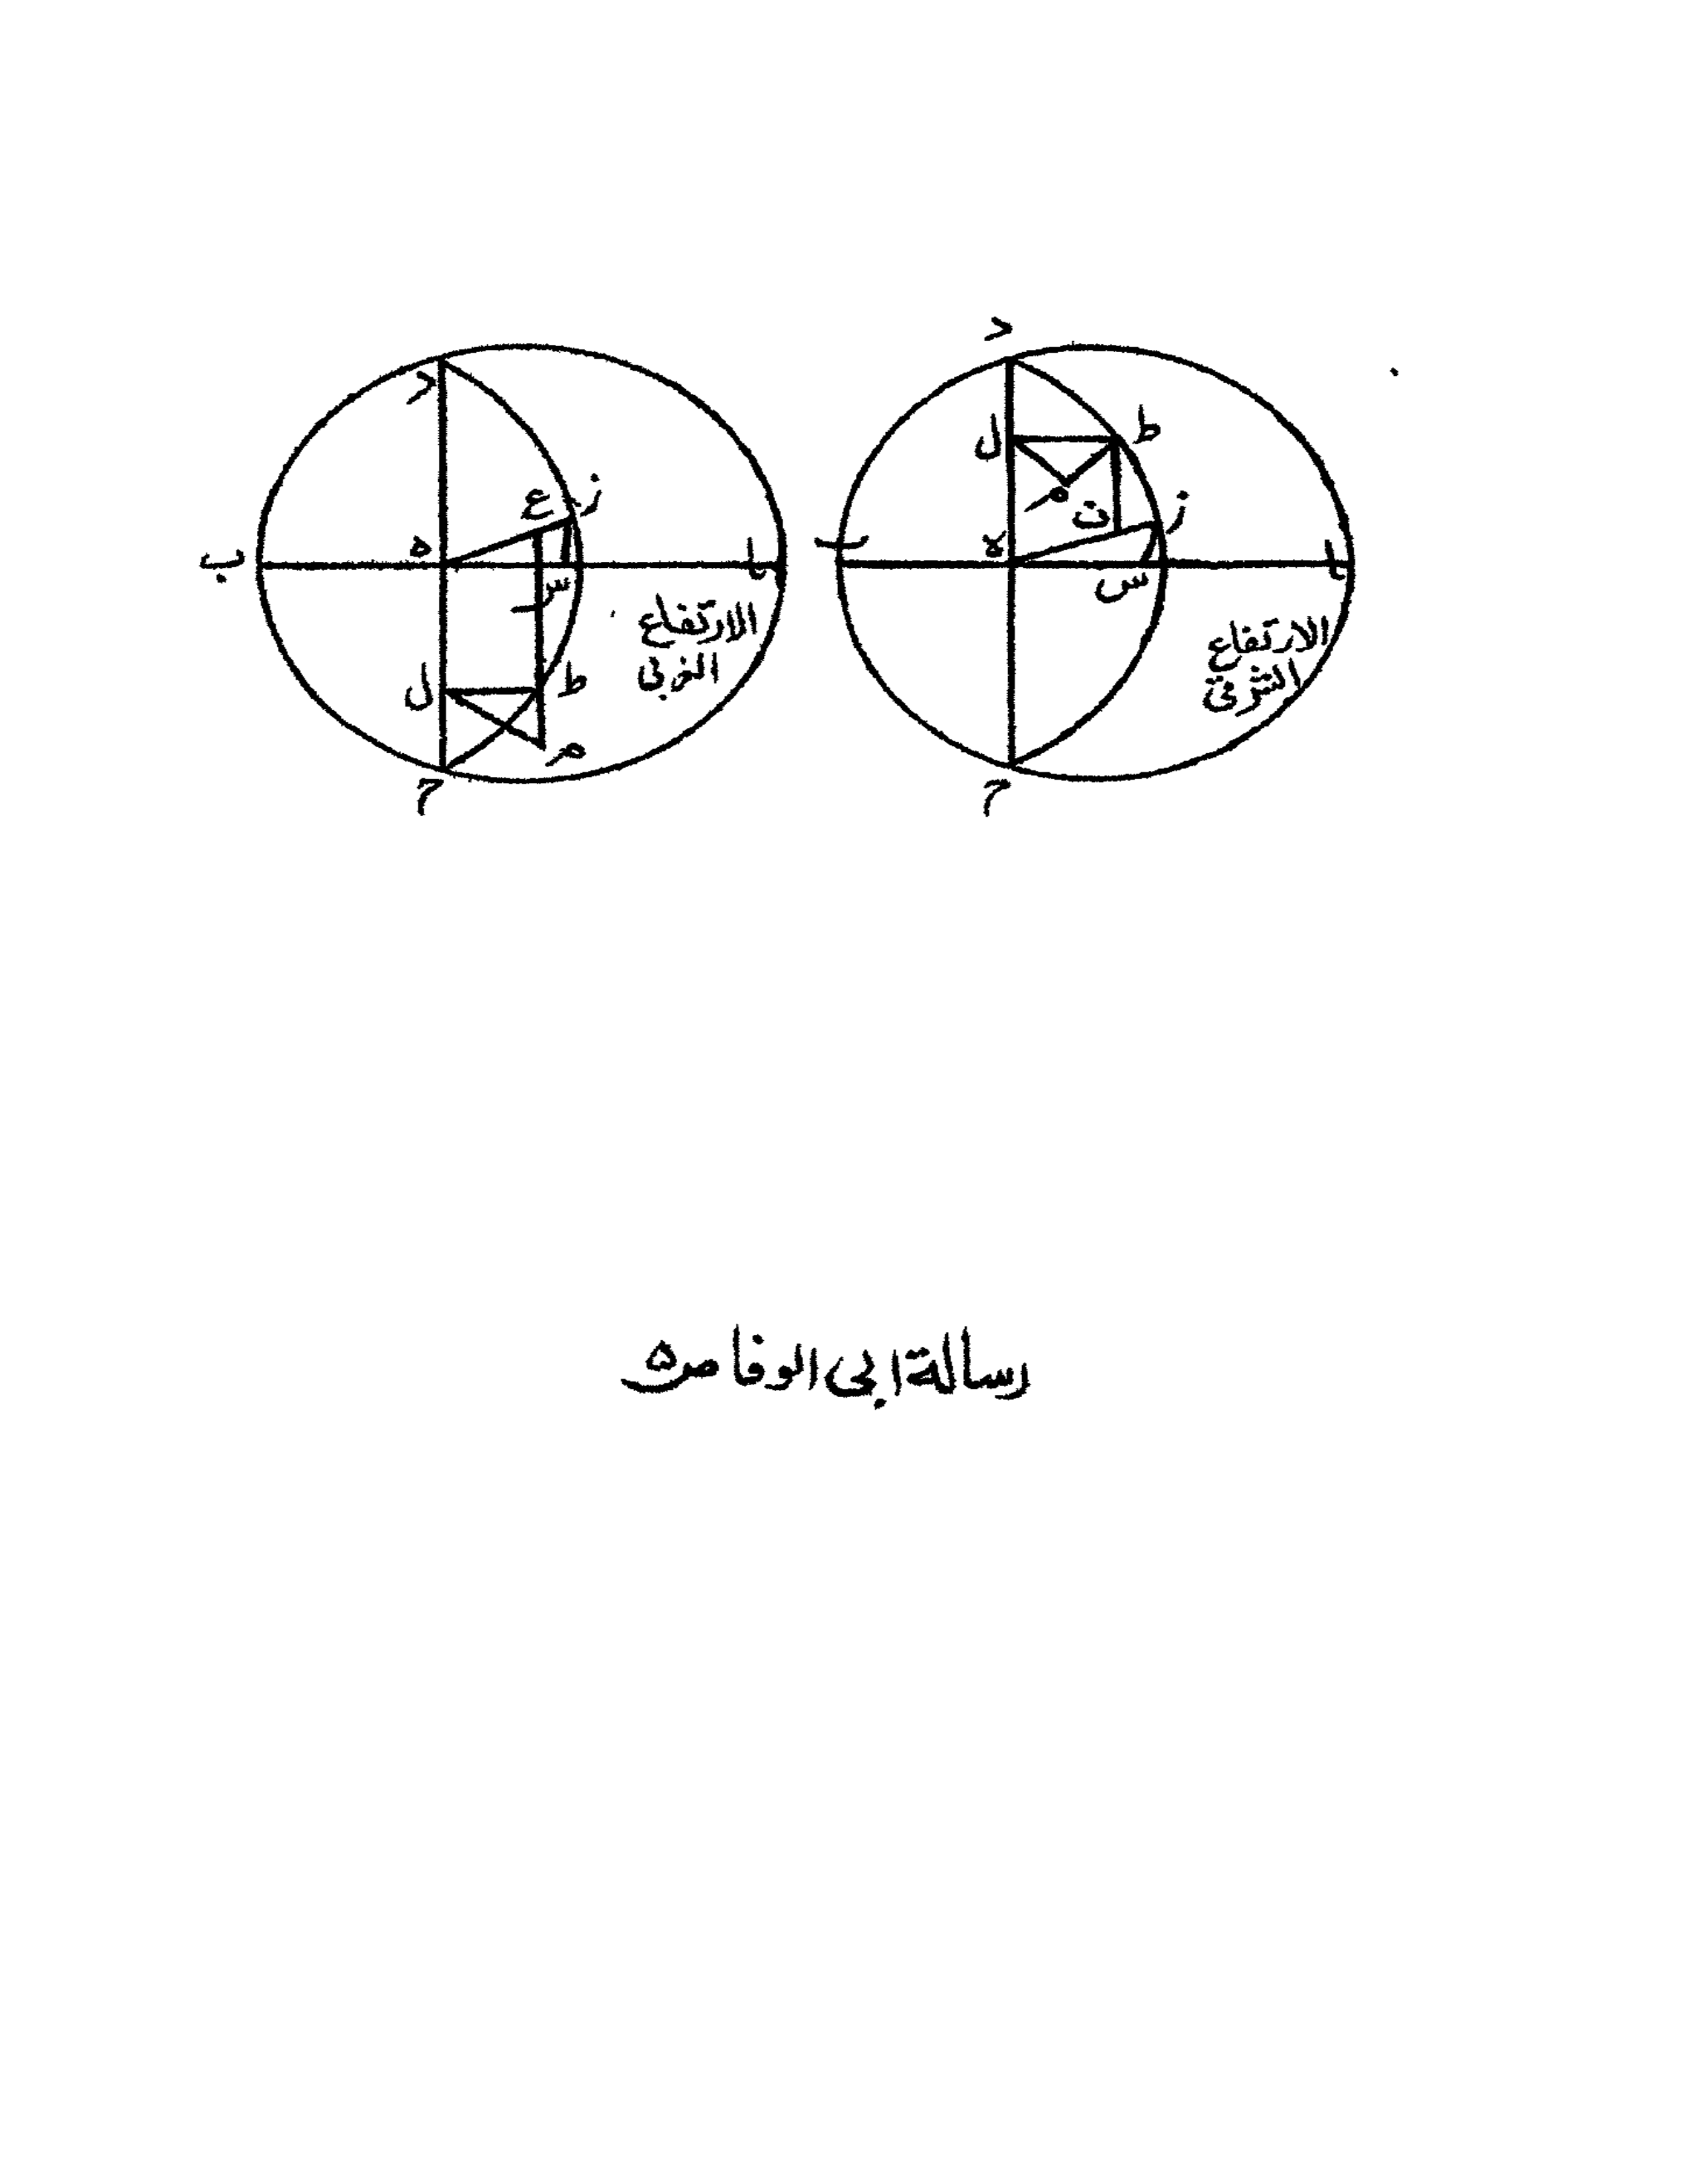 د
ط
ل
م
ن
ز
ه
ب
ا
س
الارتفاع
الشرقى
ح
د
ز
ع
ه
ب
ا
س
الارتفاع
الغربى
ل
ط
م
ح
رسالة ابى الوفا ص ٥